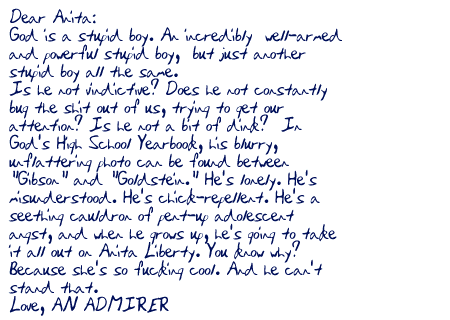 Dear Anita:
God is a stupid boy. An incredibly well-armed
and powerful stupid boy, but just another
stupid boy all the same.
Is he not vindictive? Does he not constantly
bug the shit out of us, trying to get our
attention? Is he not a bit of dink? In
God's High School Yearbook, his blurry,
unflattering photo can be found between
"Gibson" and "Goldstein." He's lonely. He's
misunderstood. He's chick-repellent. He's a
seething cauldron of pent-up adolescent
angst, and when he grows up, he's going to take
it all out on Anita Liberty. You know why?
Because she's so fucking cool. And he can't
stand that.
Love, AN ADMIRER